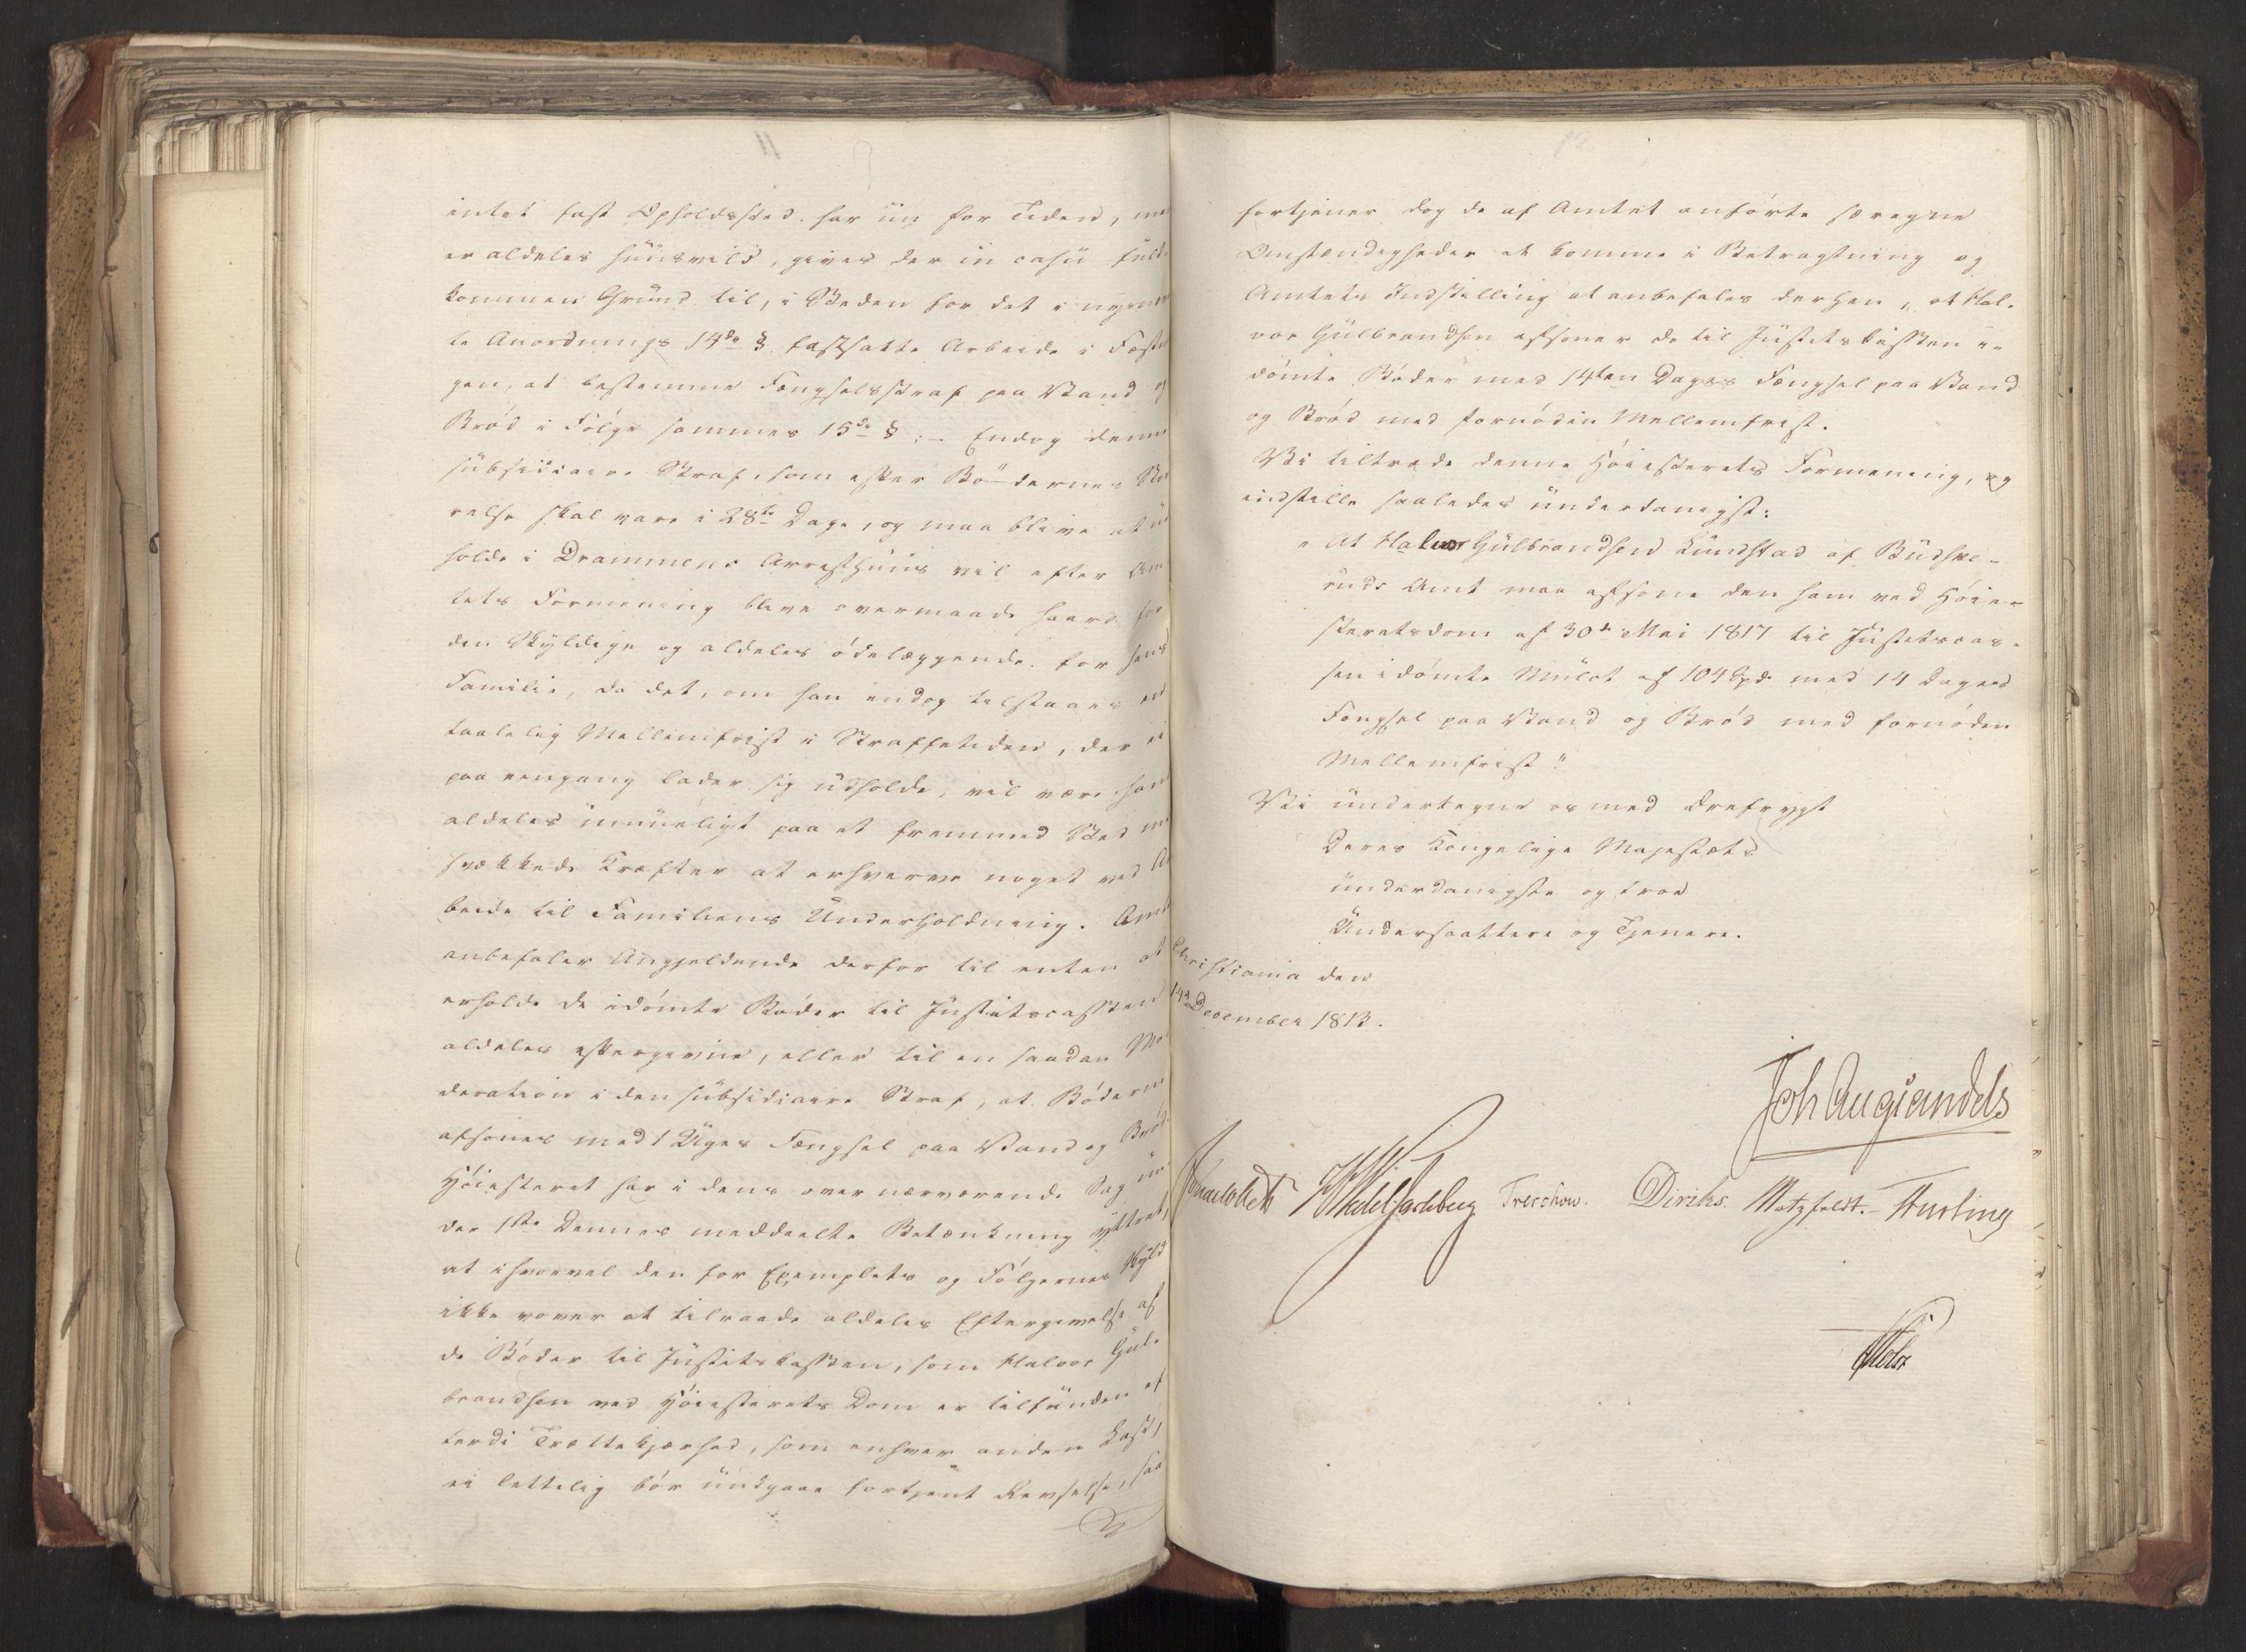 11
intet fast Opholdssted har nu for Tiden, men
er aldeles huusvild, gives der in casu fuld-
kommen Grund til, i Steden for det i nysnævn-
te Anordnings 14de § fastsatte Arbeide i Fæstnin-
gen, at bestemme Fængselsstraf paa Vand og
Brød i Følge sammes 15de §:- Endog denne
subsidiaire Straf, som efter Bødernes Stør-
relse skal vare i 28te Dage, og maa blive at ud-
holde i Drammens Arresthuus vil efter Am-
tets Formening blive overmaade haard for
den Skyldige og aldeles ødelæggende for hans
Familie, da det, om han endog tilstaaes en
taalelig Mellemfrist i Straffetiden, der ei
paa eengang lader sig udholde, vil være ham
aldeles umueligt paa et fremmed Sted med
svækkede Kræfter at erhverve noget ved Ar-
beide til Familiens Underholdning. Amtet
anbefaler Angjeldende derfor til enten at
erholde de idømte Bøder til Justitscassen
aldeles eftergivne, eller til en saadan Mo-
deration i den subsidiaire Straf, at Bøderne
afsones med 1 Uges Fængsel paa Vand og Brød.
Høiesteret har i dens over nærværende Sag un-
der 1ste Dennes meddeelte Betænkning yttret,
at ihvorvel den for Exemplets og Følgernes Skyld
ikke vover at tilraade aldeles Eftergivelse af
de Bøder til Justitskassen, som Halvor Gul-
brandsen ved Høiesterets Dom er tilfunden ef-
terdi Trættekjærhed, som enhver anden Last,
ei lettelig bør undgaae fortjent Revselse, saa
12
fortjener dog de af Amtet anførte særegne
Omstændigheder at komme i Betragtning og
Amtets Indstilling at anbefales derhen, at Hal-
vor Gulbrandsen afsoner de til Justitskassen i-
dømte Bøder med 14ten Dages Fængsel paa Vand
og Brød med fornøden Mellemfrist.
Vi tiltræde denne Høiesterets Formening, og
indstille saaledes underdanigst:
" At Halvor Gulbrandsen Lundstad af Budske-
ruds Amt maa afsone den ham ved Høie-
steretsdom af 30te Mai 1817 til Justitscas-
sen idømte Mulct af 104 Spd. med 14 Dages
Fængsel paa Vand og Brød med fornøden
Mellemfrist "
Vi undertegne os med Ærefrygt
Deres Kongelige Majestæts
underdanigste og troe
Undersaattere og Tjenere.
Christiania den
14de December 1818.
Joh Aug Sandels
Sommerhielm HWedel Jarlsberg Treschow. Diriks. Motzfeldt. Fasting
Holst